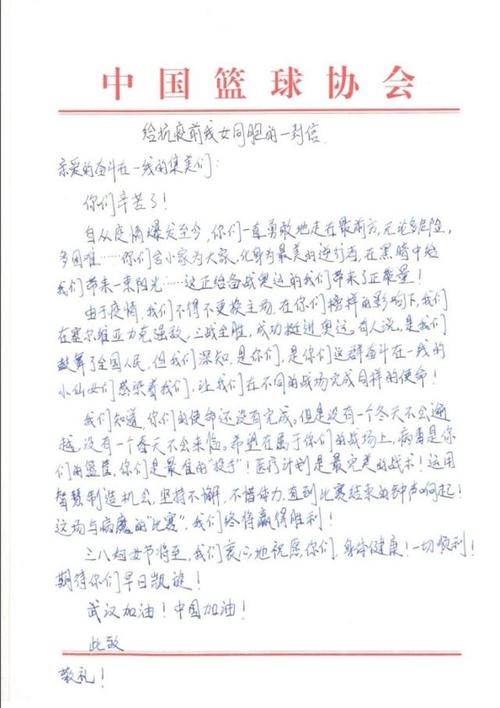 中国篮球协会
给抗疫前线女同胞的一封信
亲爱的奋斗在一线的集美们:
你们辛苦了!
自从疫情爆发至今,你们一直勇敢地走在最前方,无论多危险,
多困难……你们舍小家为大家,化身为最美的逆行者,在黑暗中给
我们带来一束阳光……这正给备战奥运的我们带来了正能量!
由于疫情,我们不得不更换主场,在你们榜样的影响下,我们
在塞尔维亚力克强敌,三战全胜,成功挺进奥运。有人说,是我们
鼓舞了全国人民,但我们深知,是你们,是你们这群奋斗在一线的
小仙女们感染着我们,让我们在不同的战场完成同样的使命!
我们知道,你们的使命还没有完成,但是没有一个冬天不会逾
越,没有一个春天不会来临。希望在属于你们的战场上,病毒是你
们的篮筐,你们是最准的"投手"!医疗计划是最完美的战术!运用
智慧制造机会,坚持不懈,不惜体力,直到比赛结束的钟声响起!
这场与病魔的"比赛",我们终将赢得胜利!
三八妇女节将至,我们衷心地祝愿你们,身体健康!一切顺利!
期待你们早日凯旋!
武汉加油!中国加油!
此致
敬礼!